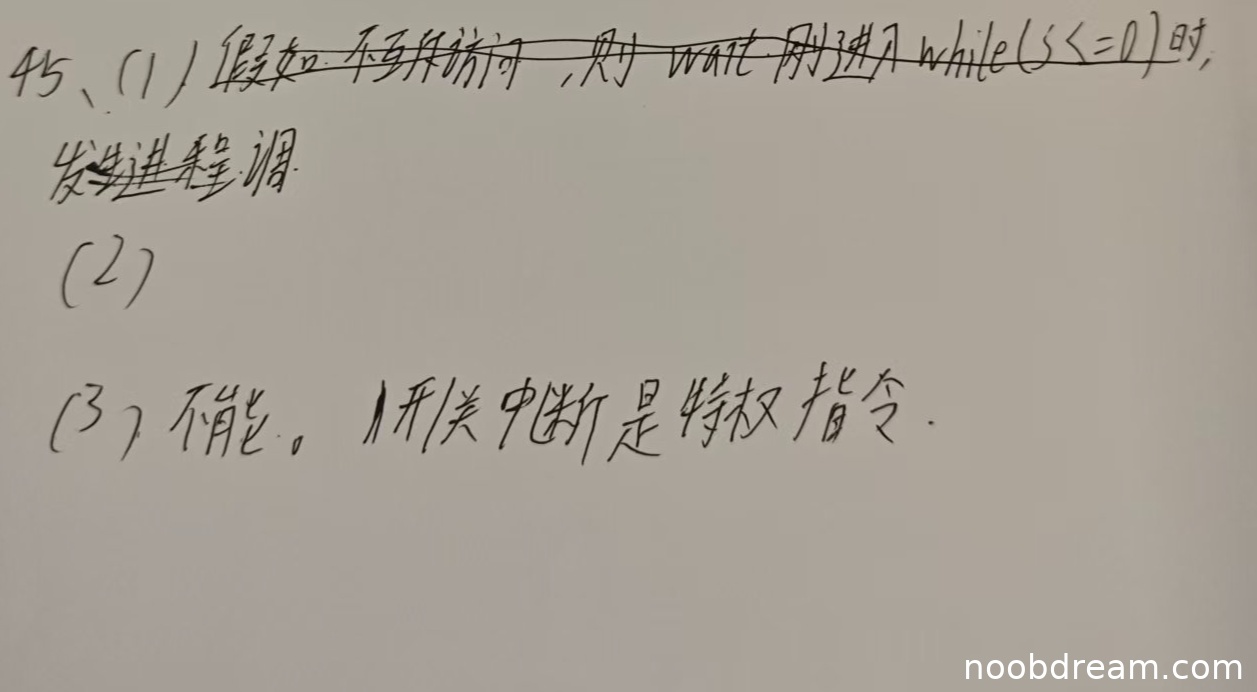 45、(1) 假如不互斥访问,则 wait 刚进入 while(S<=0)时,
发生进程调
(2)
(3) 不能。开/关中断是特权指令.
noobdream.com